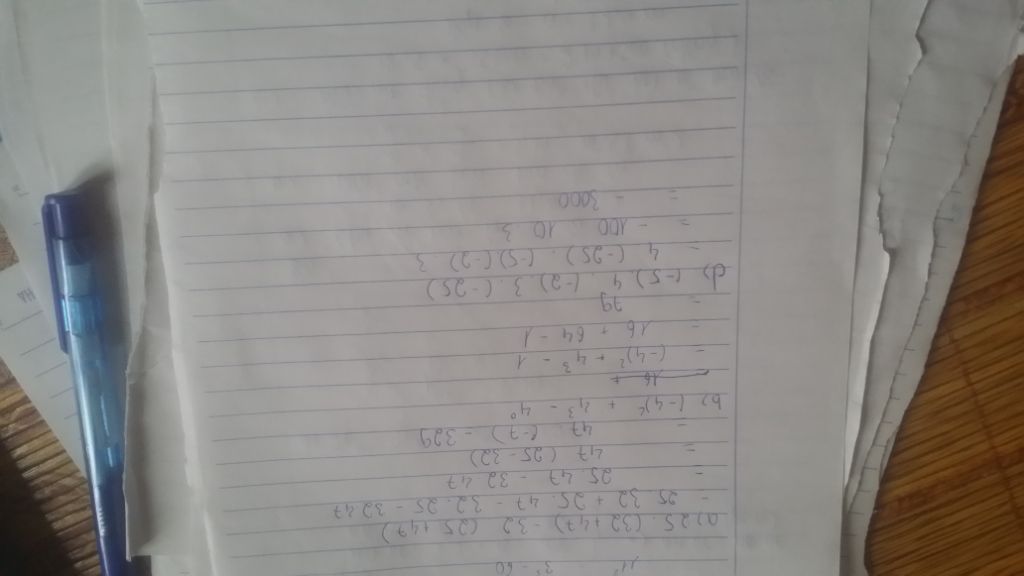 a) 25. (32 + 47) - 32 (25 + 47)
= 25. 32 + 25. 47 - 32. 25 - 32 47
= 25. 47 - 32 47
= 47 (25 - 32)
= 47. (-7) = - 329
b) (-4)² + 4³ - 4⁰
16 +
= (-4)² + 4³ - 1
= 16 + 64 - 1
= 79
d) (-5) 4 . (-2) 3. (-25)
= 4 (-25). (-5) (-2) 3
= - 100 10 3
= - 3000